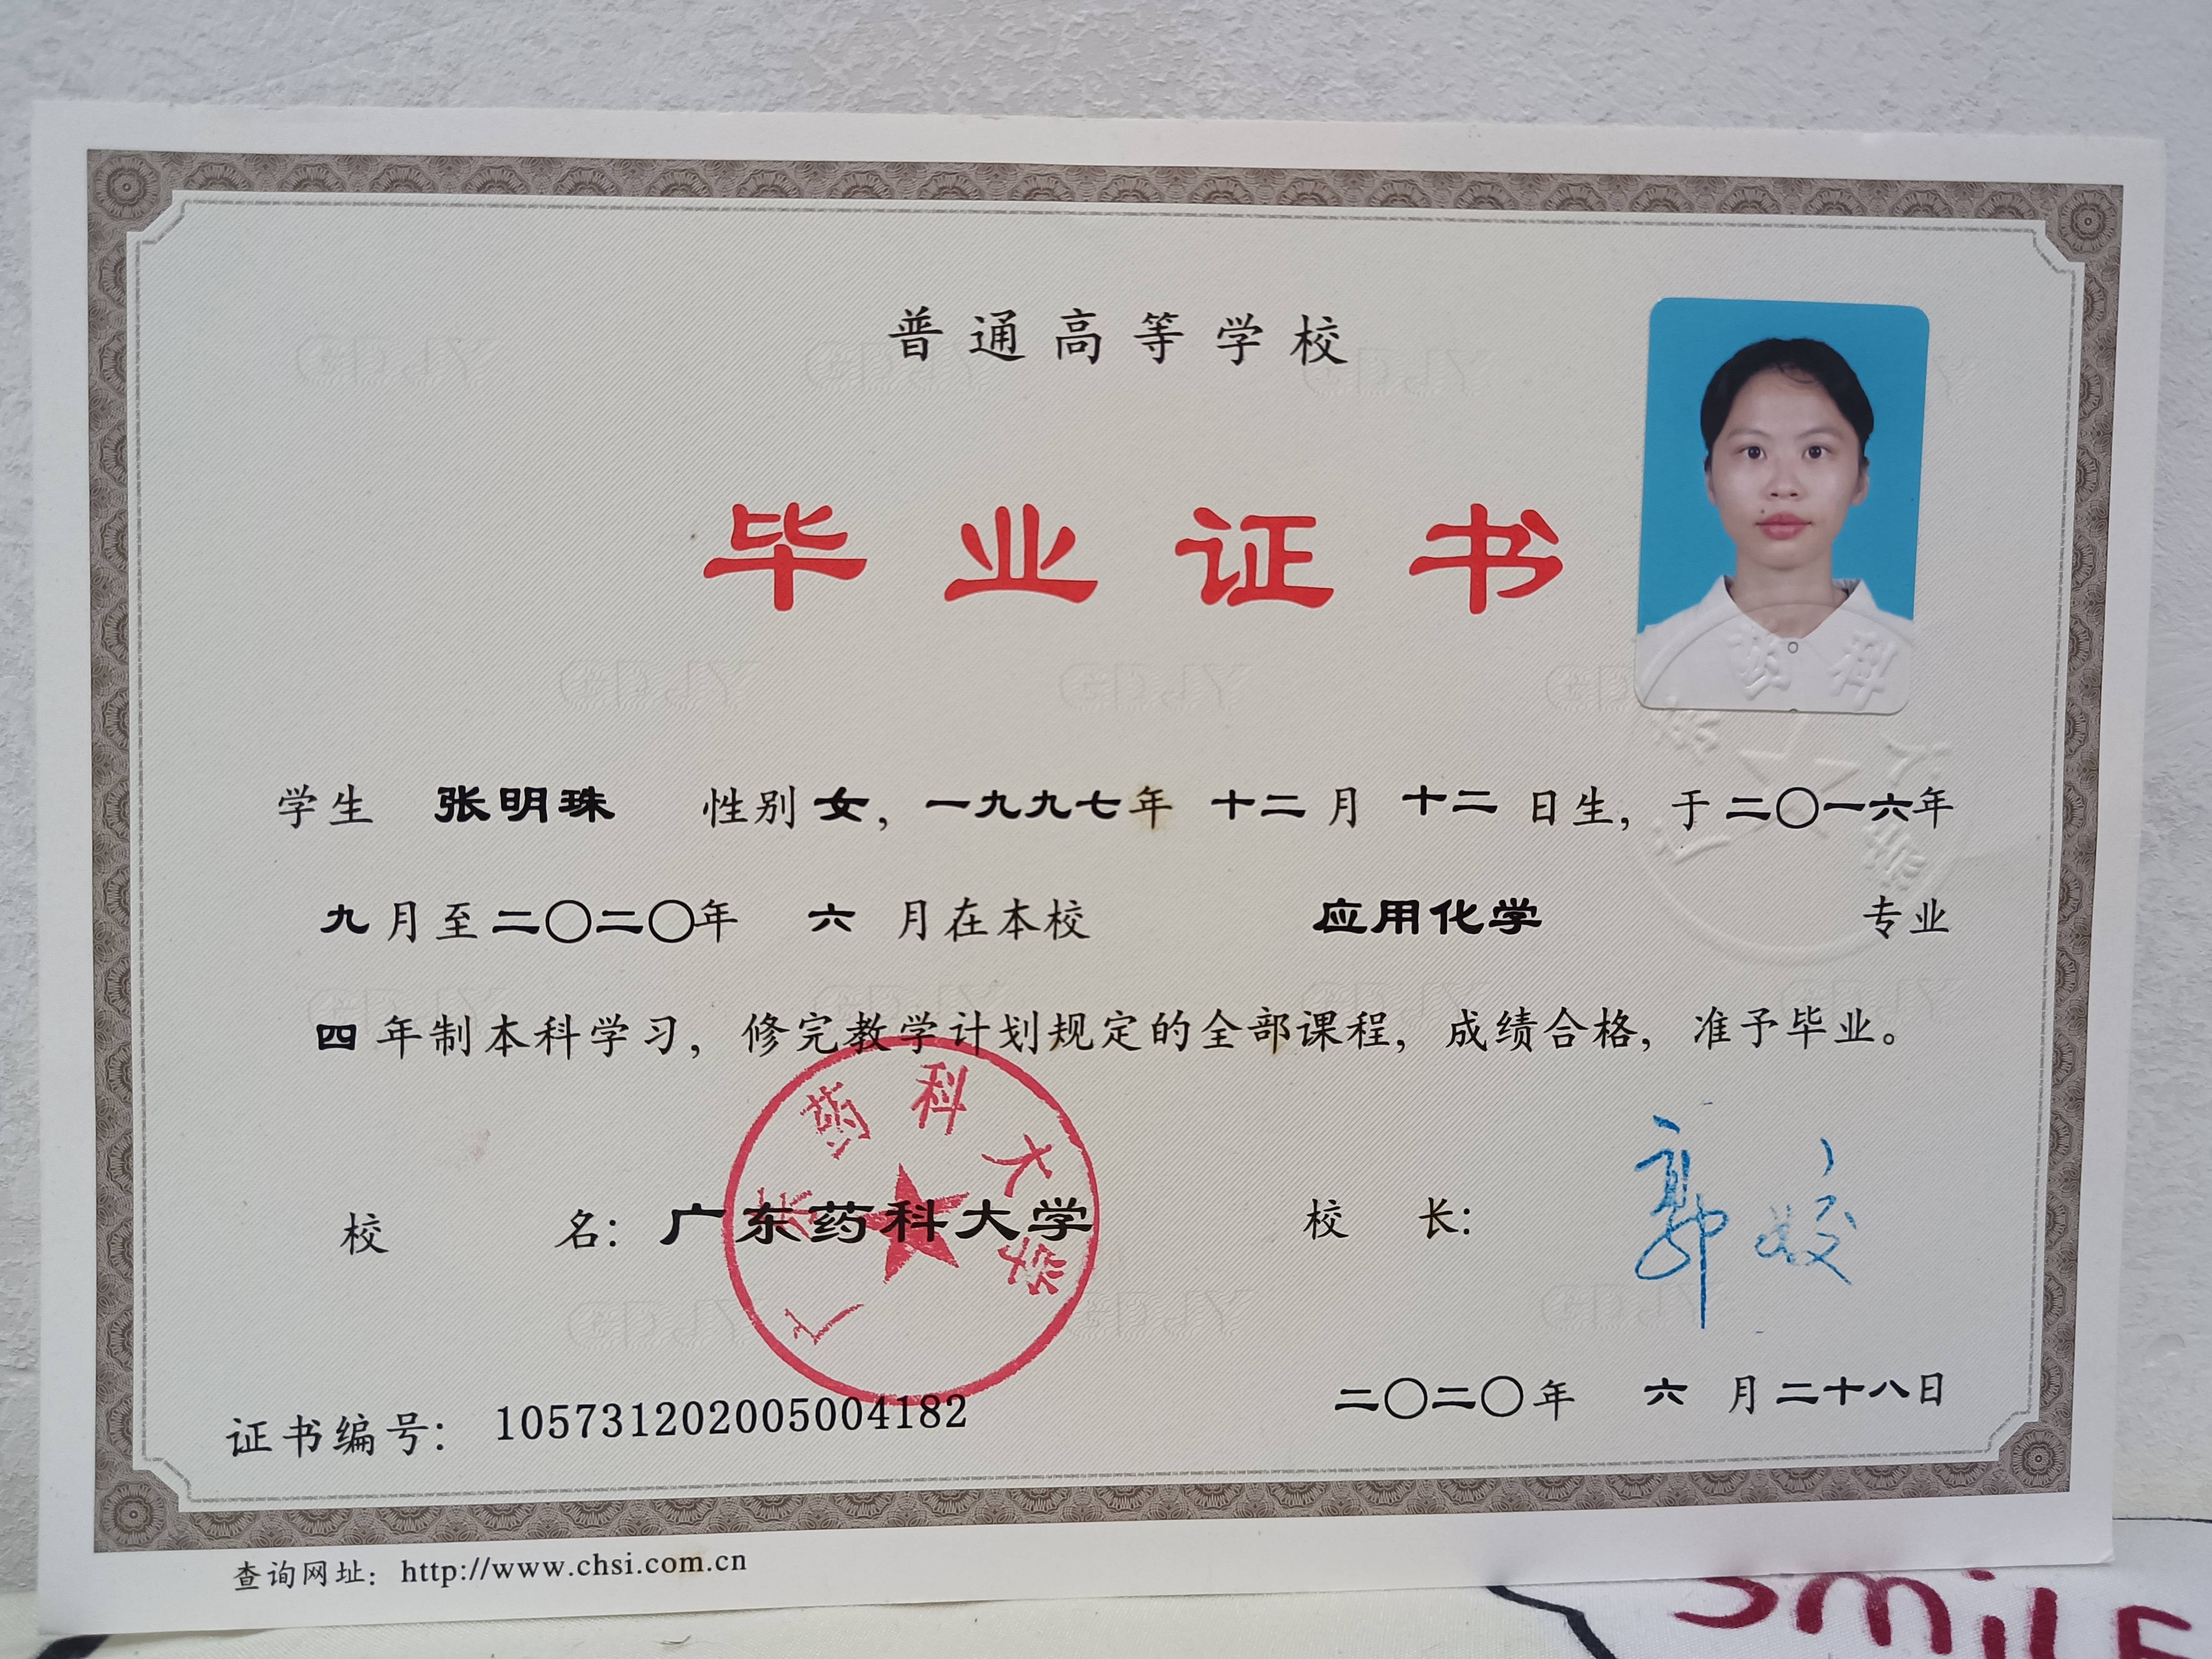 普通高等学校
毕业证书
学生 张明珠 性别 女，一九九七年 十二 月 十二 日生，于 二〇一六年
九 月至 二〇二〇年 六 月在本校 应用化学 专业
四 年制本科学习，修完教学计划规定的全部课程，成绩合格，准予毕业。
广东药科大学
校 名：广东药科大学 校 长：郭姣
证书编号：105731202005004182 二〇二〇年 六 月 二十八日
查询网址：http://www.chsi.com.cn
SMILE